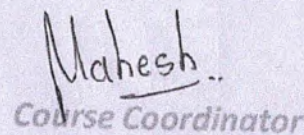 Mahesh..
Course Coordinator